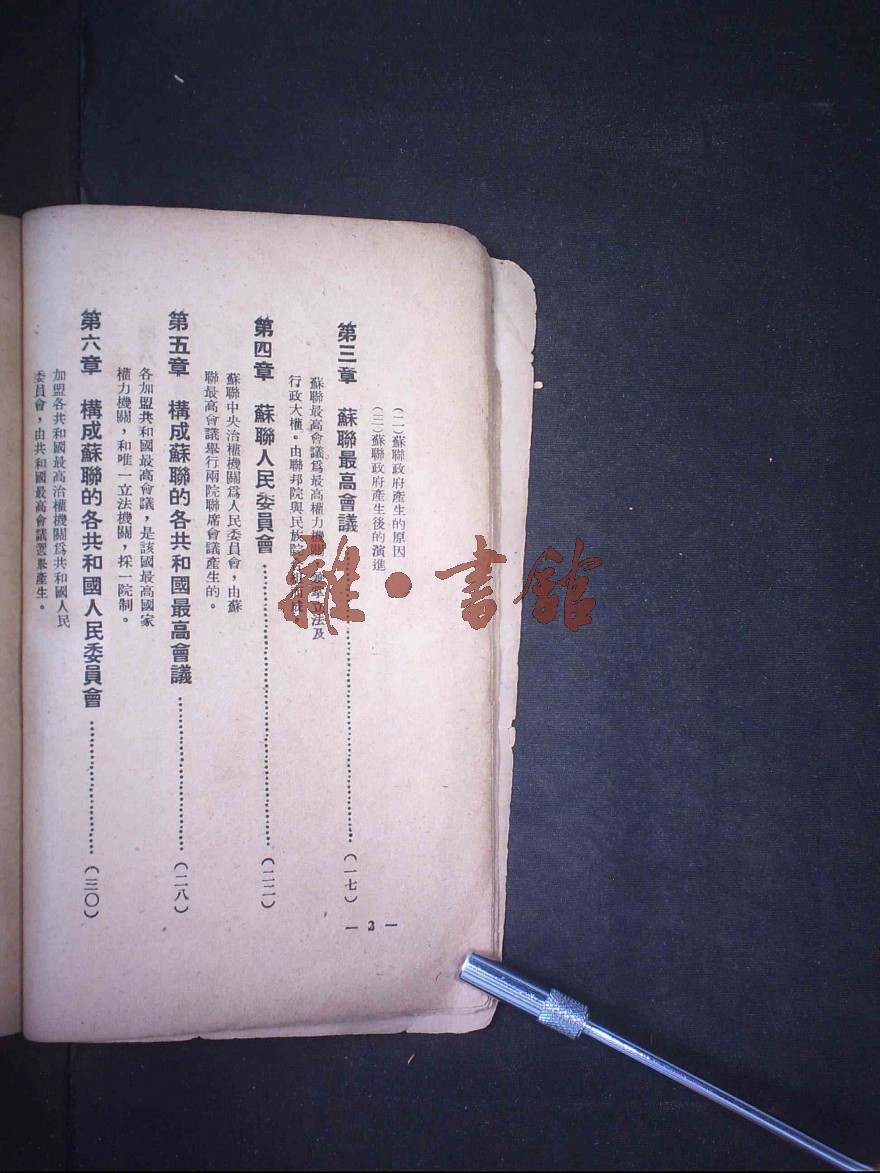 (二)蘇聯政府產生的原因
(三)蘇聯政府產生後的演進
第三章 蘇聯最高會議……(一七)
蘇聯最高會議爲最高權力機關 立法及
行政大權。由聯邦院與民族院
第四章 蘇聯人民委員會……(二二)
蘇聯中央治權機關爲人民委員會，由蘇
聯最高會議舉行兩院聯席會議產生的。
第五章 構成蘇聯的各共和國最高會議……(二八)
各加盟共和國最高會議，是該國最高國家
權力機關，和唯一立法機關，採一院制。
第六章 構成蘇聯的各共和國人民委員會……(三〇)
加盟各共和國最高治權機關爲共和國人民
委員會，由共和國最高會議選舉產生。
— 2 —
雜·書館